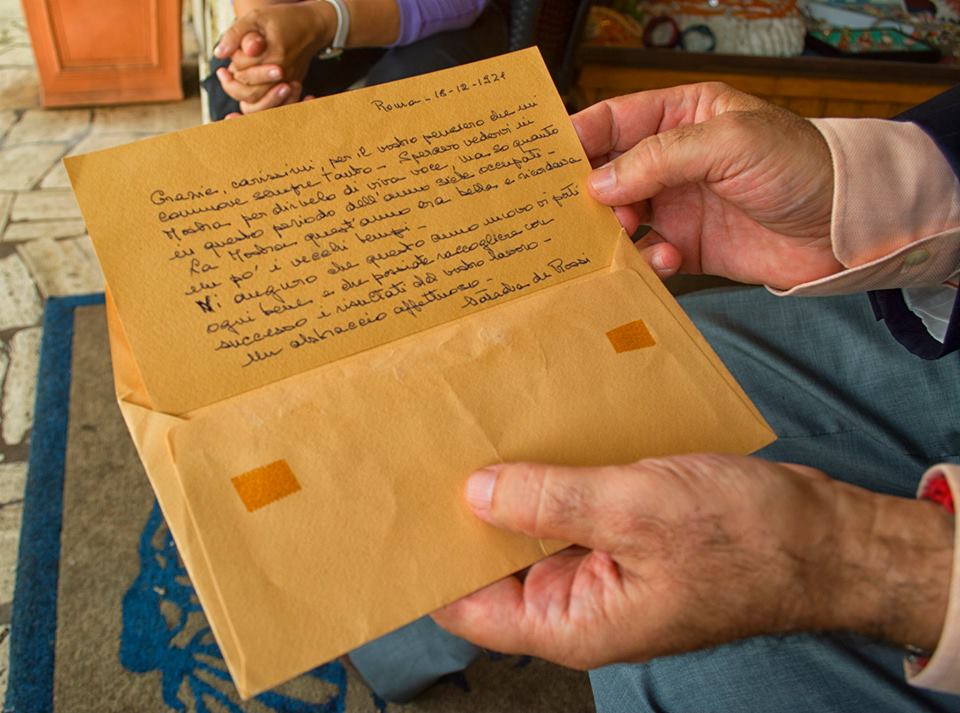 Roma - 18-12-1971
Grazie, carissimi, per il vostro pensiero che mi
commuove sempre tanto - Speravo vedervi in
Mostra per dirvelo di viva voce, ma so quanto
in questo periodo dell'anno siete occupati -
La Mostra quest'anno era bella e ricordava
un po' i vecchi tempi -
Vi auguro che questo anno nuovo vi porti
ogni bene, e che possiate raccogliere con
successo i risultati del vostro lavoro -
Un abbraccio affettuoso -
de Rossi